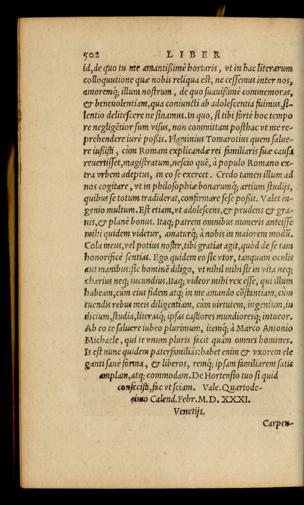 502 LIBER
id, de quo tu me amantißimè hortaris, vt in hac literarum
colloquutione quæ nobis reliqua est, ne cessemus inter nos,
amoremq́; illum nostrum, de quo suauißimè commemoras,
& beneuolentiam, qua coniuncti ab adolescentia fuimus, si-
lentio delitescere ne sinamus. In quo, si tibi fortè hoc tempo
re negligētior sum visus, non committam posthac vt me re-
prehendere iurè poßis. Flaminius Tomarotius quem salue-
re iußisti, cùm Romam explicandæ rei familiaris suæ causa
reuertisset, magistratum, nescio quē, à populo Romano ex-
tra vrbem adeptus, in eo se exercet. Credo tamen illum ad
nos cogitare, vt in philosophiæ bonarumq́; artium studijs,
quibus se totum tradiderat, confirmare sese poßit. Valet in-
genio multum. Est etiam, vt adolescens, & prudens & gra-
uis, & planè bonus. Itaq; patrem omnibus numeris antecisse
mihi quidem videtur, amaturq́; à nobis in maiorem modū.
Cola meus, vel potius nostr, tibi gratias agit, quòd de se tam
honorificè sentias. Ego quidem eo sic vtor, tanquam oculis
aut manibus: sic hominē diligo, vt nihil mihi sit in vita neq;
charius neq; iucundius. Itaq; videor mihi rex esse, qui illum
habeam, cùm eius fidem atq; in me amando cōstantiam, cùm
tuendis rebus meis diligentiam, cùm virtutem, ingenium, iu
dicium, studia, literasq́;, ipsas castiores mundioresq́; intueor.
Ab eo te saluere iubeo plurimum, itemq́; à Marco Antonio
Michaele, qui te vnum pluris facit quàm omnes homines.
Is est nunc quidem paterfamiliàs: habet enim & vxorem ele
ganti sanè forma, & liberos, remq́; ipsam familiarem satis
amplam, atq; commodam. De Hortensio tuo si quid
confecisti, fac vt sciam. Vale. Quartode-
cimo Calend. Febr. M. D. XXXI.
Venetijs.
Carpen-